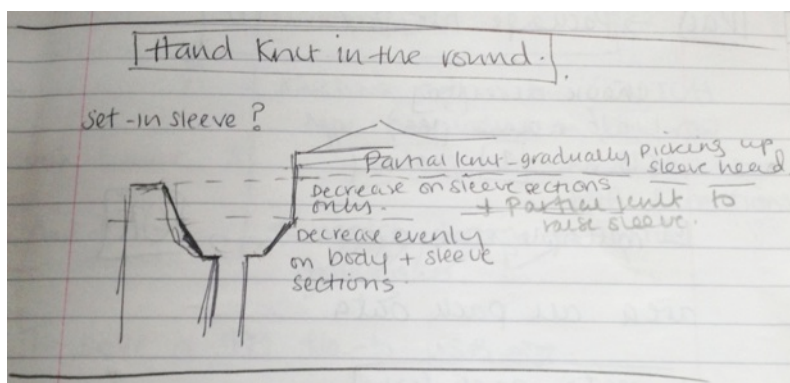 Hand Knit in the round.
set-in sleeve?
Partial knit - gradually picking up
sleeve head
Decrease on sleeve sections
only. + Partial knit to
raise sleeve.
Decrease evenly
on body + sleeve
sections.